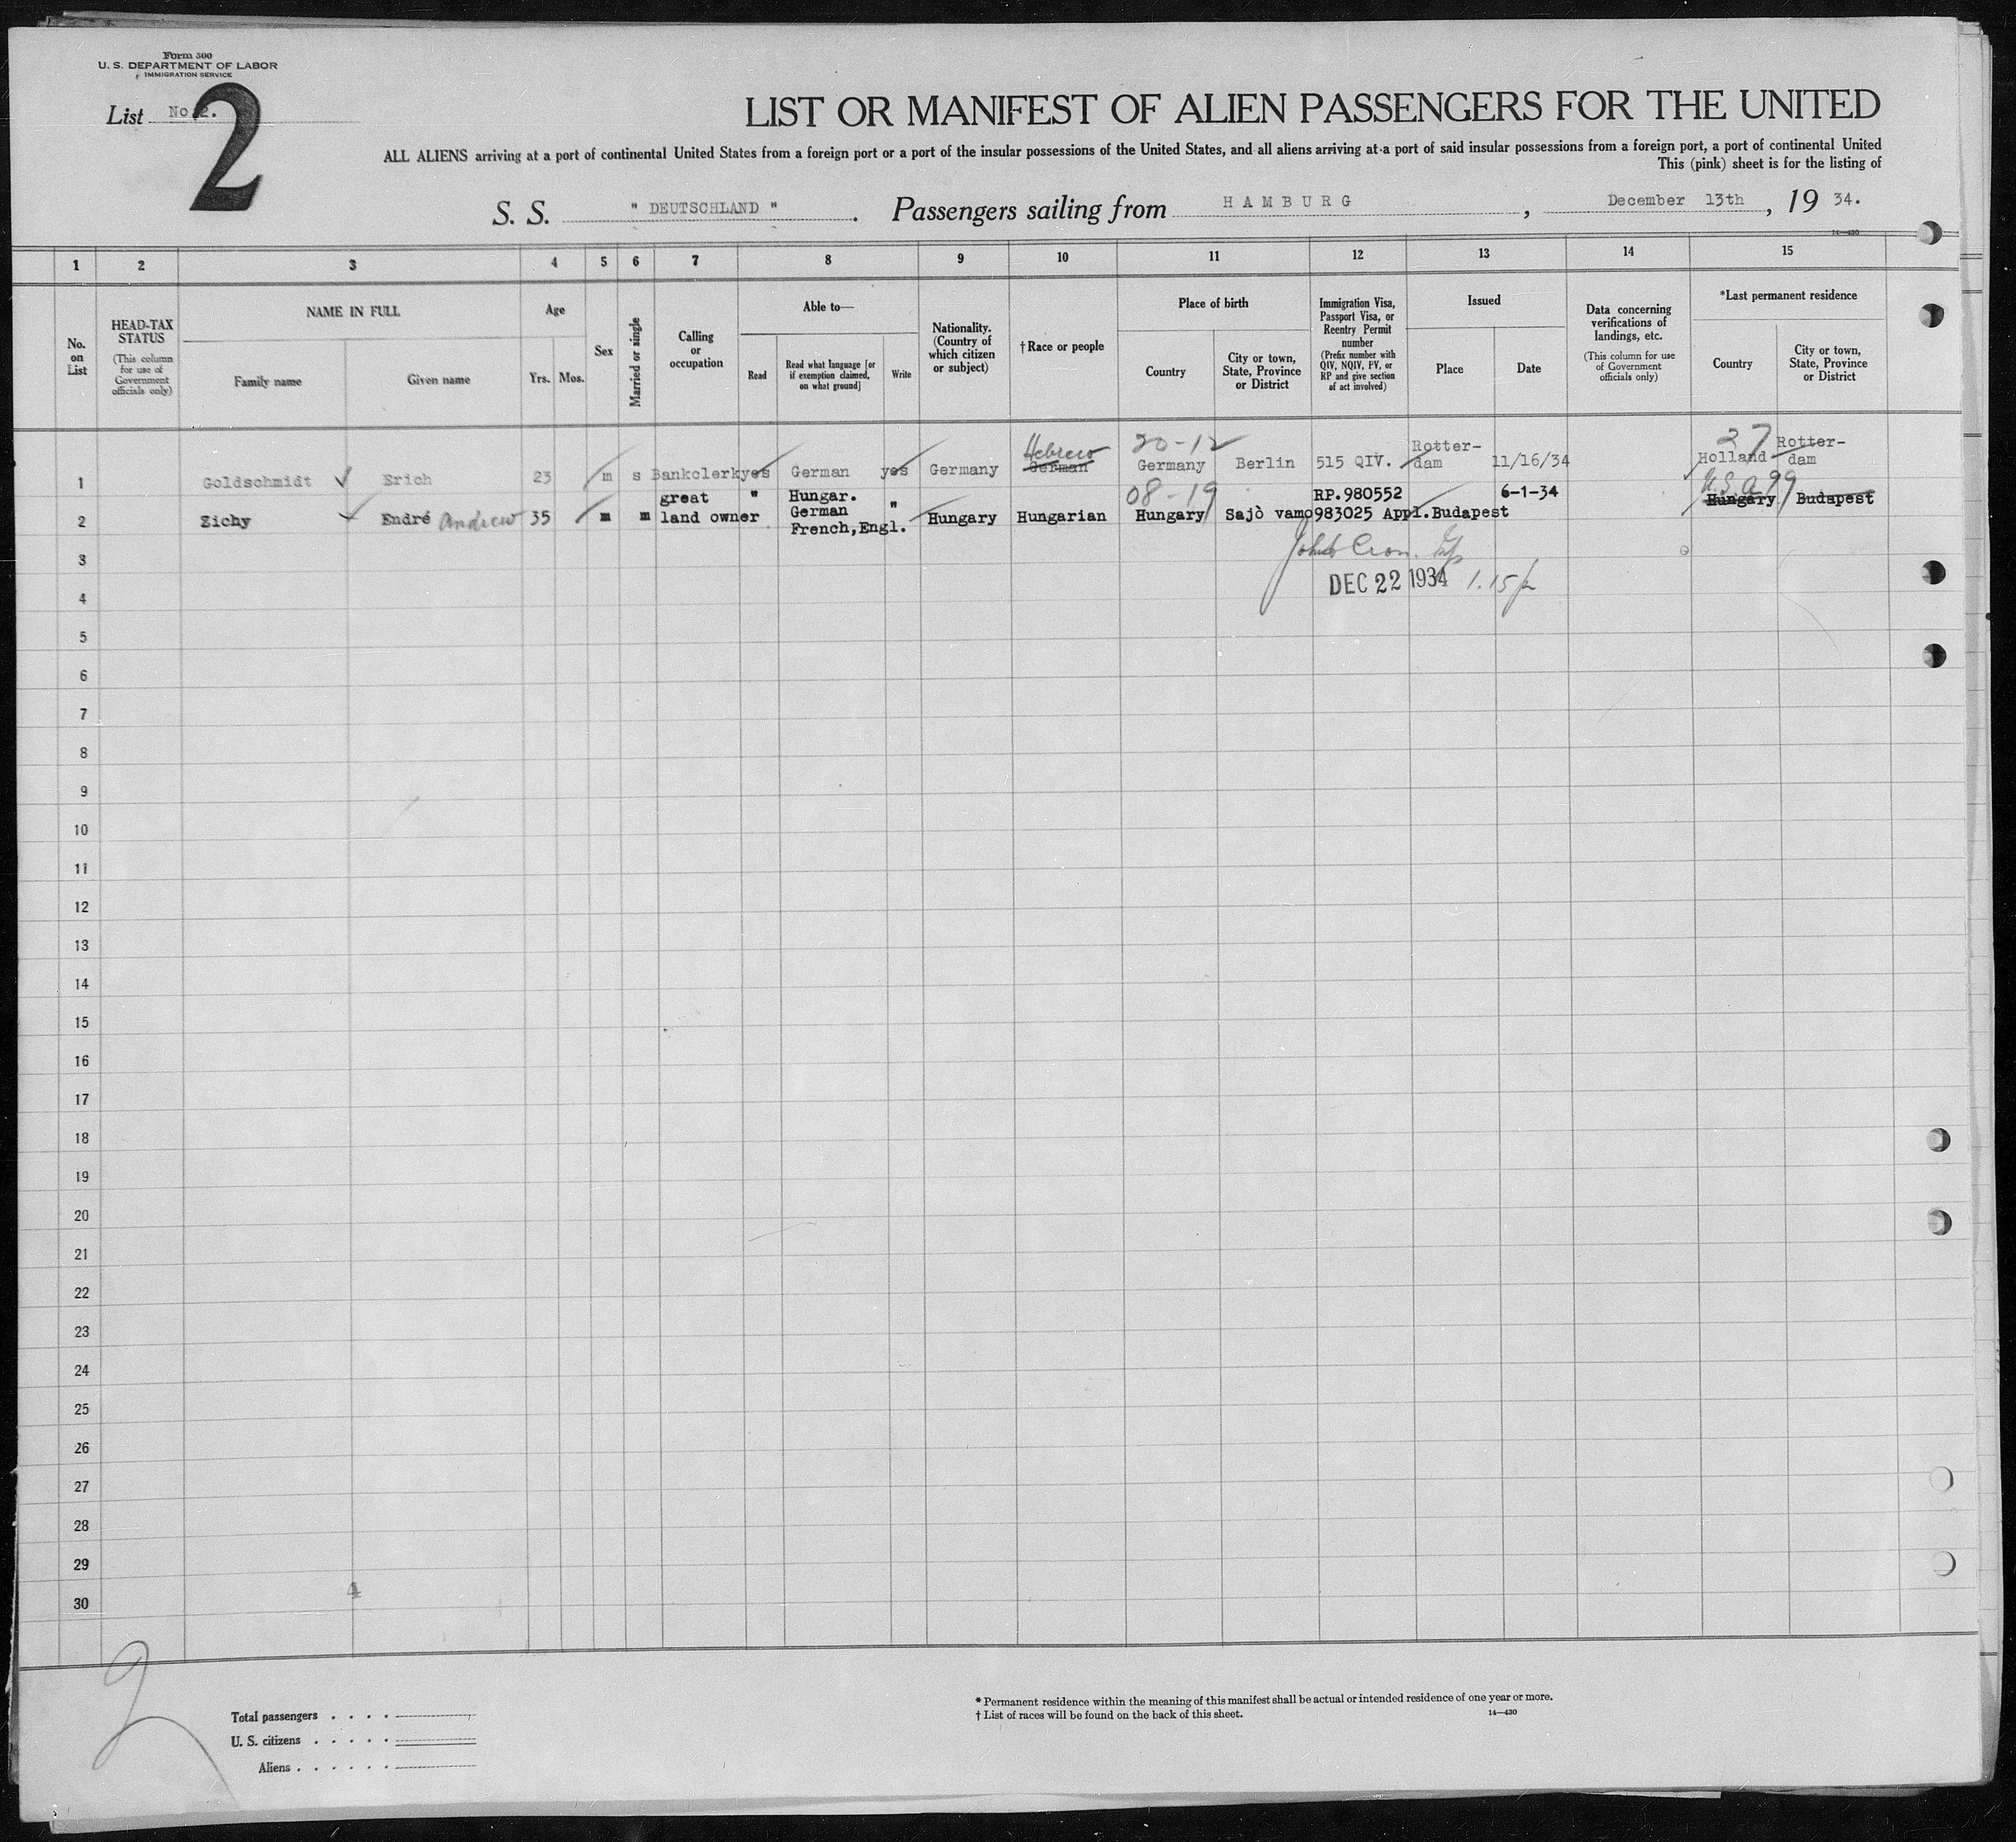 Form 500
U. S. DEPARTMENT OF LABOR
IMMIGRATION SERVICE
List No. 2.
2
LIST OR MANIFEST OF ALIEN PASSENGERS FOR THE UNITED
ALL ALIENS arriving at a port of continental United States from a foreign port or a port of the insular possessions of the United States, and all aliens arriving at a port of said insular possessions from a foreign port, a port of continental United
This (pink) sheet is for the listing of
S. S. " DEUTSCHLAND " . Passengers sailing from HAMBURG , December 13th , 19 34.
14—430
1 2 3 4 5 6 7 8 9 10 11 12 13 14 15
No. on List
HEAD-TAX STATUS
(This column for use of Government officials only)
NAME IN FULL
Family name
Given name
Age
Yrs. Mos.
Sex
Married or single
Calling or occupation
Able to—
Read
Read what language [or if exemption claimed, on what ground]
Write
Nationality. (Country of which citizen or subject)
†Race or people
Place of birth
Country
City or town, State, Province or District
Immigration Visa, Passport Visa, or Reentry Permit number
(Prefix number with QIV, NQIV, PV, or RP and give section of act involved)
Issued
Place
Date
Data concerning verifications of landings, etc.
(This column for use of Government officials only)
*Last permanent residence
Country
City or town, State, Province or District
Hebrew 20-12 Rotter- 27 Rotter-
1 Goldschmidt Erich 23 m s Bankclerk yes German yes Germany German Germany Berlin 515 QIV. dam 11/16/34 Holland dam
great " Hungar. " 08-19 RP.980552 6-1-34 U.S.A 99
2 Zichy Endré Andrew 35 m m land owner German Hungary Hungarian Hungary Sajò vamo 983025 Appl. Budapest Hungary Budapest
French, Engl.
3
DEC 22 1934 1.15p
4
5
6
7
8
9
10
11
12
13
14
15
16
17
18
19
20
21
22
23
24
25
26
27
28
29
4
30
2
Total passengers . . . .
U. S. citizens . . . . .
Aliens . . . . . .
* Permanent residence within the meaning of this manifest shall be actual or intended residence of one year or more.
† List of races will be found on the back of this sheet.
14—430